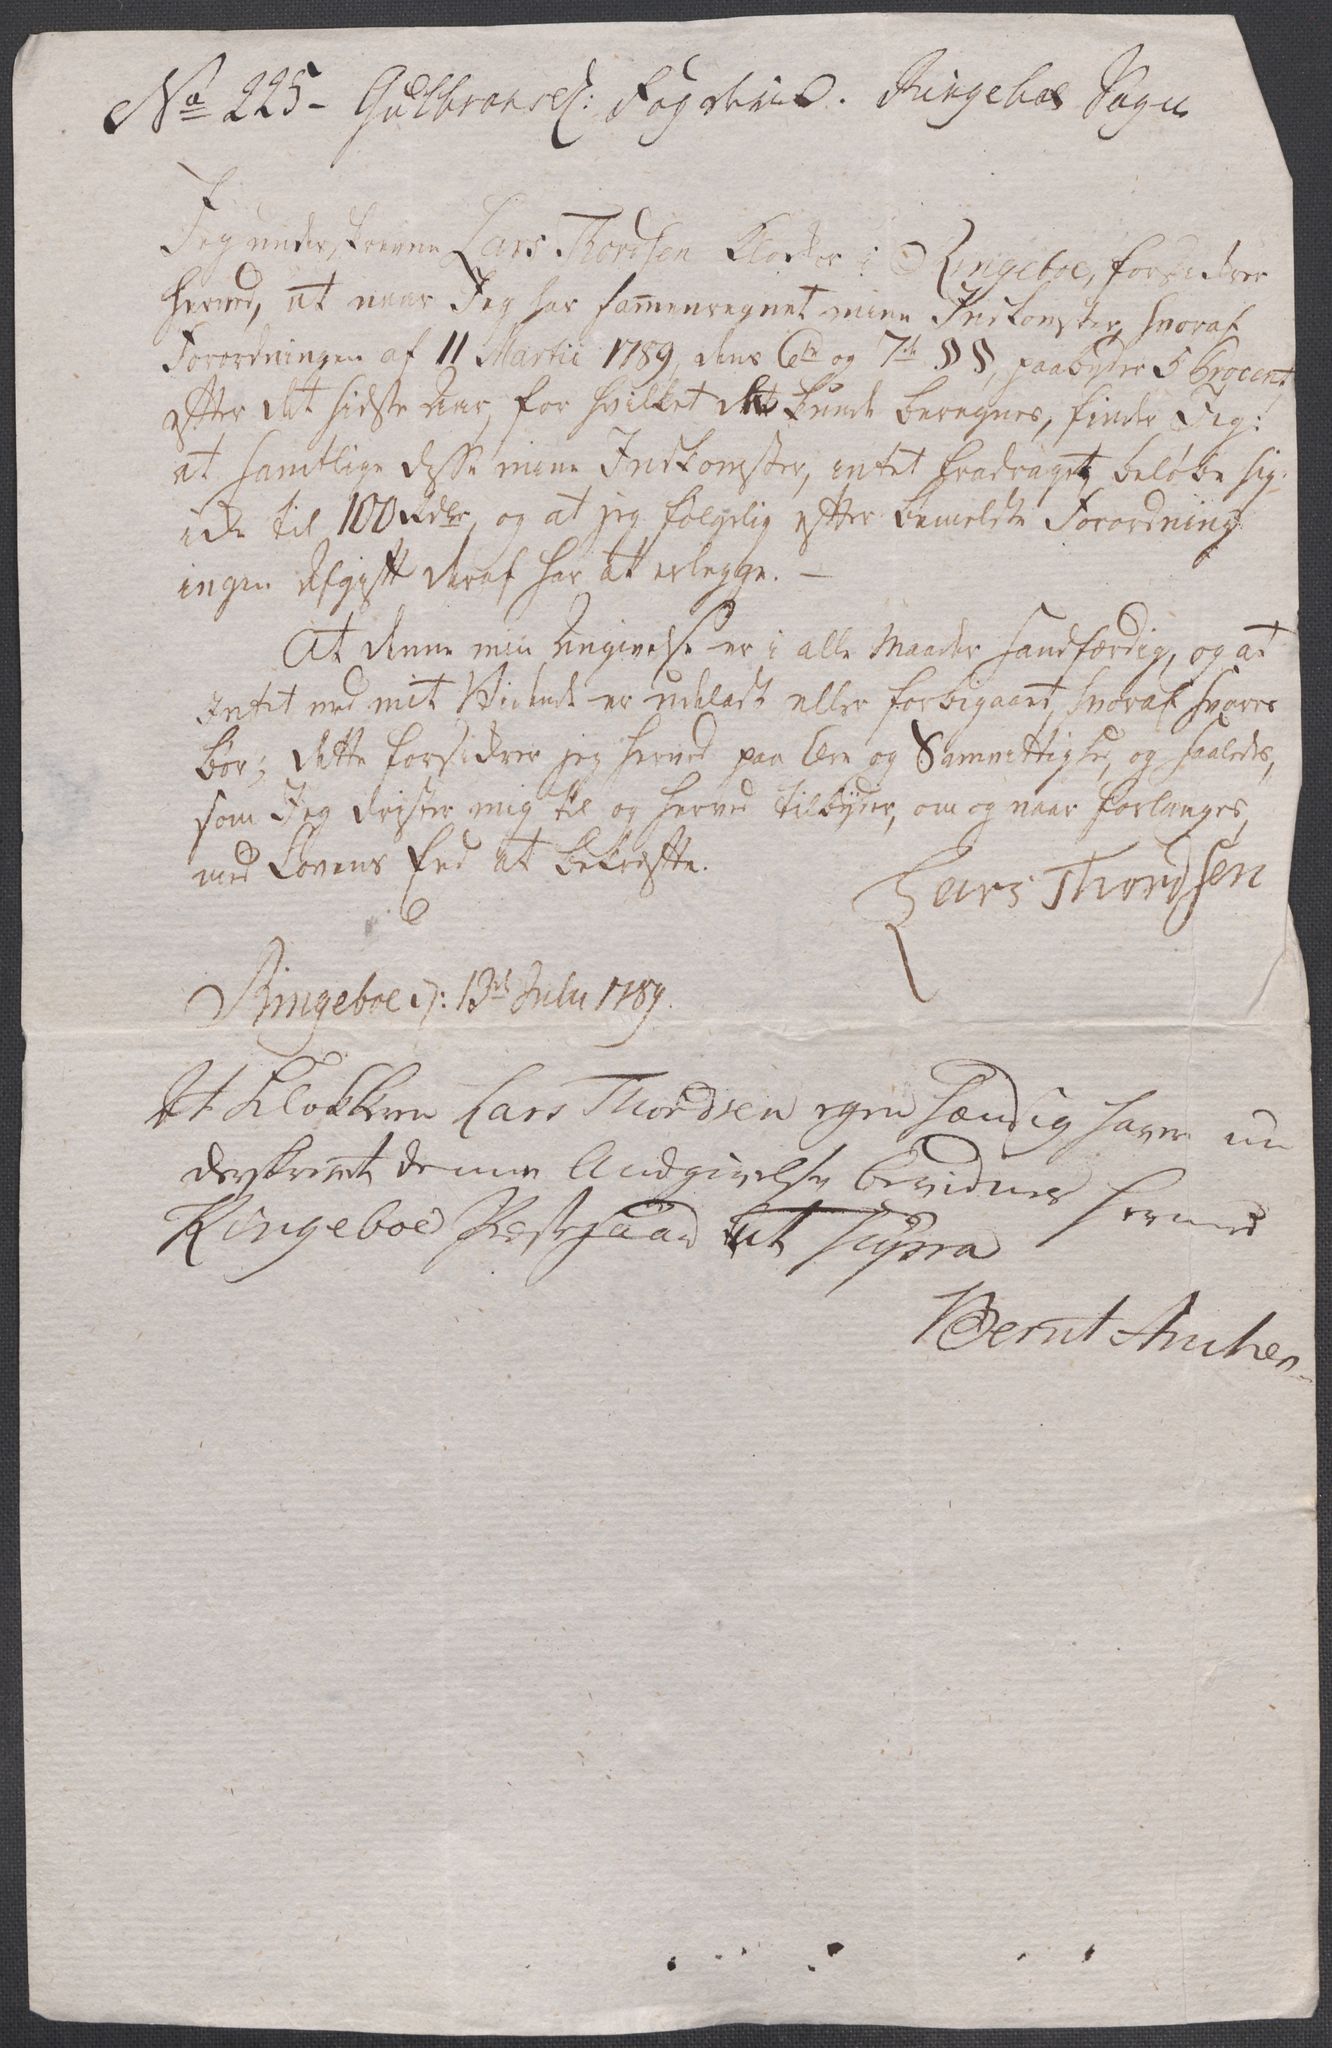 No 225 - Gulbransd: Fogderie. Ringeboe Sogn
Jeg underskrevne Lars Thordsen Klokker i Ringeboe, forsikrer
herved, at naar Jeg har sam̅enregnet mine Indkomster, hvoraf
Forordningen af 11 Martii 1789, dens 6te og 7de §§, paabyder 5 Procent,
efter det sidste Aar, for hvilket det kunde beregnes, finder Jeg:
at samtlige disse mine Indkomster, intet fradraget, beløbe sig
ikke til 100 Rdlr, og at jeg følgelig efter bemeldte Forordning
ingen Afgift deraf har at erlegge. —
At denne min Angivelse er i alle Maader sandfærdig, og at
intet med mit Vidende er udeladt eller forbigaaet, hvoraf svares
bør; dette forsikrer jeg herved paa Ære og Samvittighed, og saaledes,
som Jeg drister mig til og herved tilbyder, om og naar forlanges,
med Lovens Eed at bekræfte.
Lars Thordsen
Ringeboe d: 13de Julii 1789.
At Klokkeren Lars Thordsen egenhændig haver un
derskrevet denne Andgivelse bevidnes herved
Ringeboe Præstegaard ut supra
Bernt Ancher